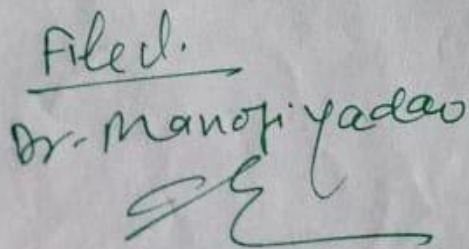 Filed.
Dr. Manoj Yadav